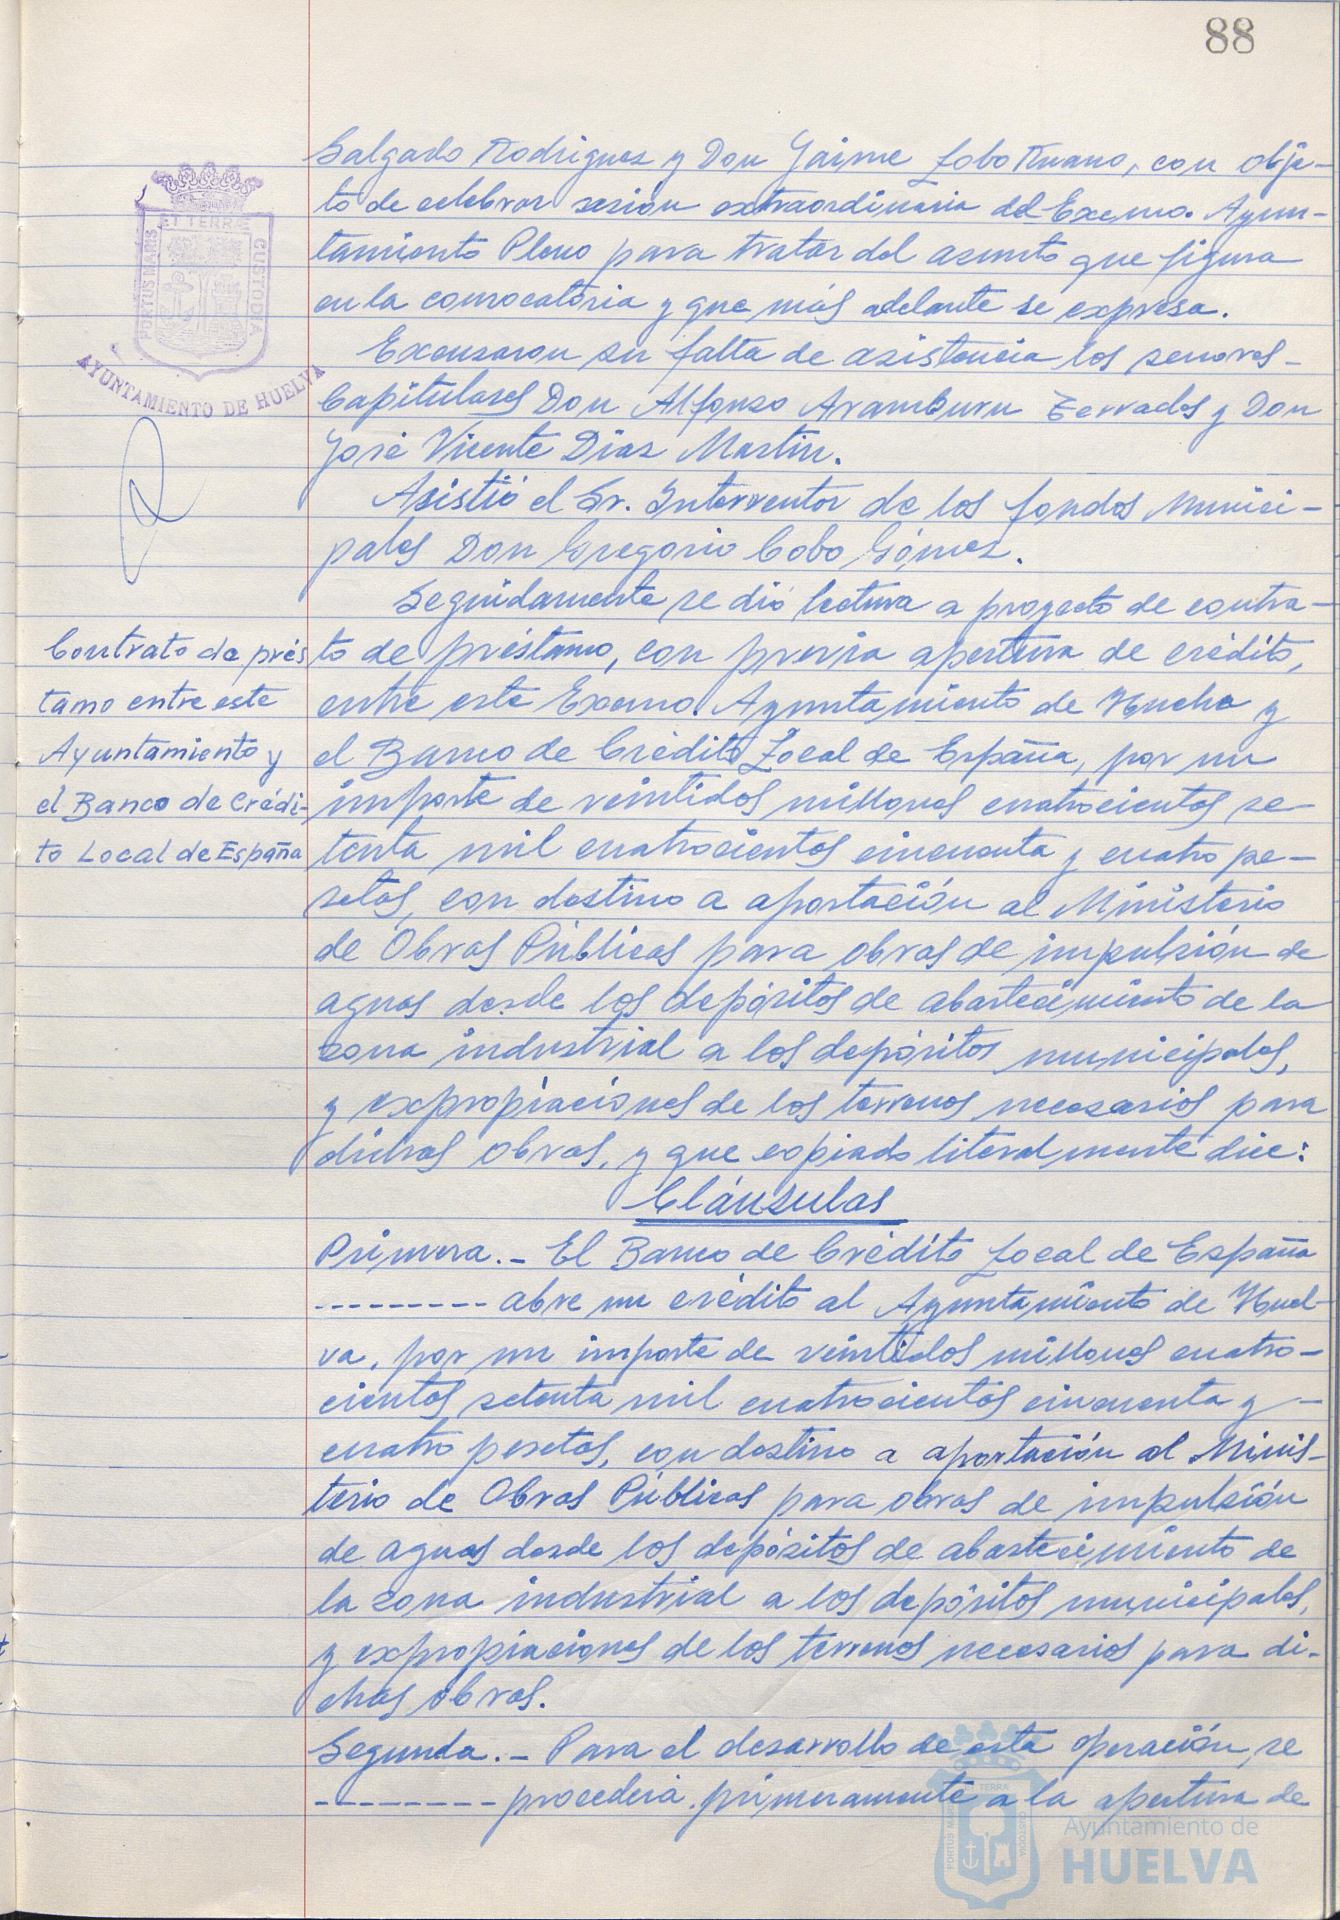 88
Salgado Rodriguez y Don Jaime Lobo Ruano, con obje-
to de celebrar sesión extraordinaria del Excmo. Ayun-
tamiento Pleno para tratar del asunto que figura
en la convocatoria y que más adelante se expresa.
Excusaron su falta de asistencia los señores
Capitulares Don Alfonso Aramburu Terrades y Don
José Vicente Díaz Martín.
Asistió el Sr. Interventor de los fondos Munici-
pales Don Gregorio Cobo Gómez.
Seguidamente se dió lectura a proyecto de contra-
to de préstamo, con previa apertura de crédito,
entre este Excmo. Ayuntamiento de Huelva y
el Banco de Crédito Local de España, por un
importe de veintidos millones cuatrocientos se-
tenta mil cuatrocientos cincuenta y cuatro pe-
setas, con destino a aportación al Ministerio
de Obras Públicas para obras de impulsión de
aguas desde los depósitos de abastecimiento de la
zona industrial a los depósitos municipales,
y expropiaciones de los terrenos necesarios para
dichas obras, y que copiado literalmente dice:
Cláusulas
Primera.- El Banco de Crédito Local de España
--------- abre un crédito al Ayuntamiento de Huel-
va, por un importe de veintidos millones cuatro-
cientos setenta mil cuatrocientos cincuenta y -
cuatro pesetas, con destino a aportación al Minis-
terio de Obras Públicas para obras de impulsión
de aguas desde los depósitos de abastecimiento de
la zona industrial a los depósitos municipales,
y expropiaciones de los terrenos necesarios para di-
chas obras.
Segunda.- Para el desarrollo de esta operación, se
--------- procederá primeramente a la apertura de
Contrato de prés
tamo entre este
Ayuntamiento y
el Banco de Crédi-
to Local de España
PORTUS MARIS
ET TERRÆ
CUSTODIA
AYUNTAMIENTO DE HUELVA
Ayuntamiento de
HUELVA